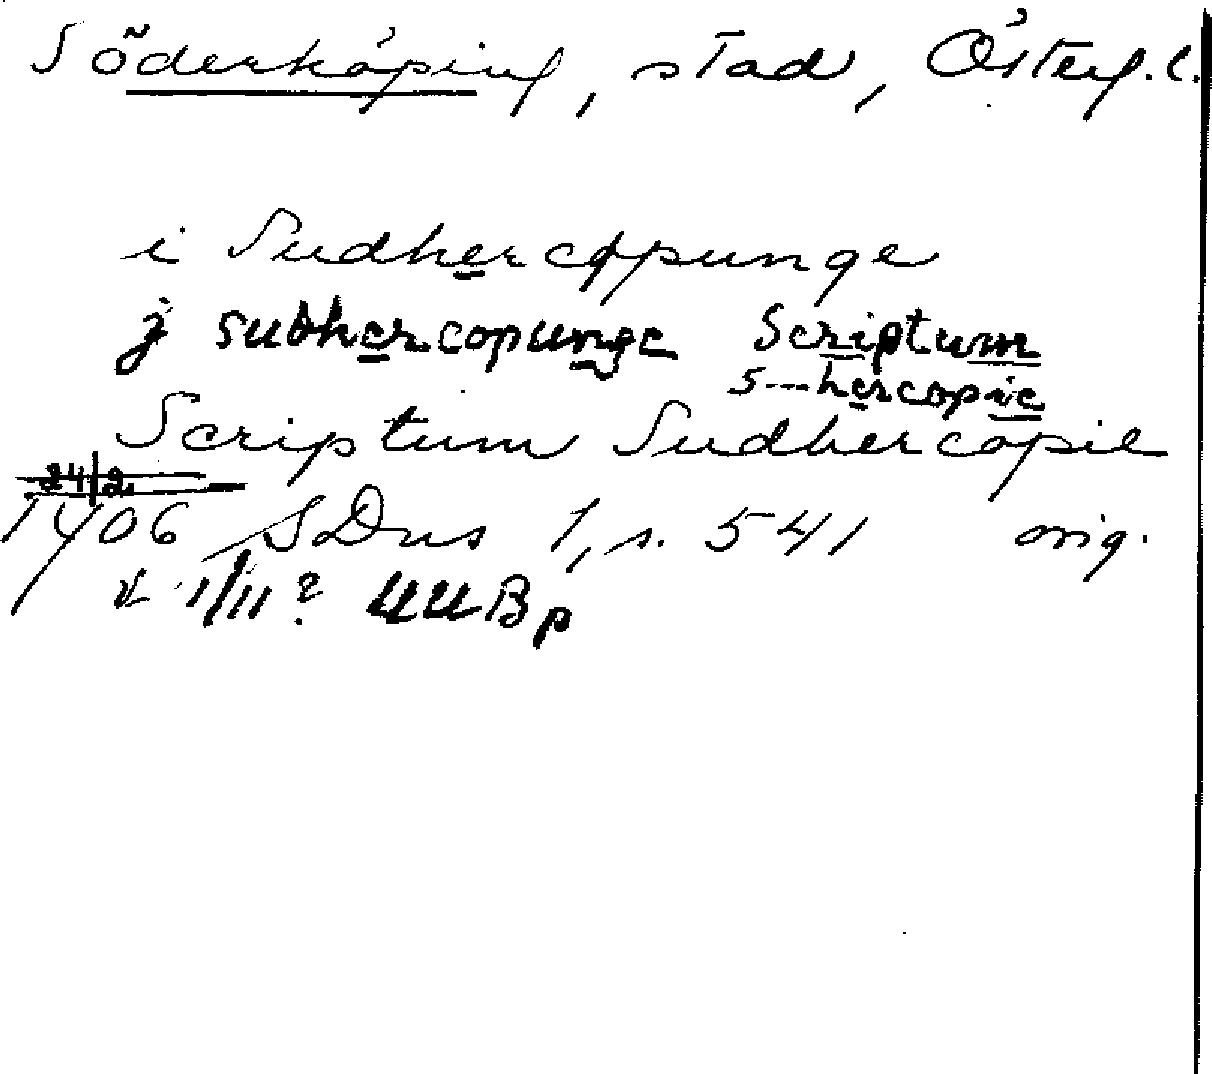 Söderköping, stad, Österg. l.
i Sudhercopunge
j sudhercopunge Scriptum
s---hercopie
Scriptum Sudhercopie
24/2
1406 SDns 1, s. 541 orig.
1/11? UUB p